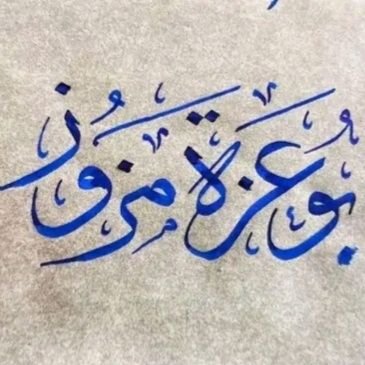 بوعزة مزوز